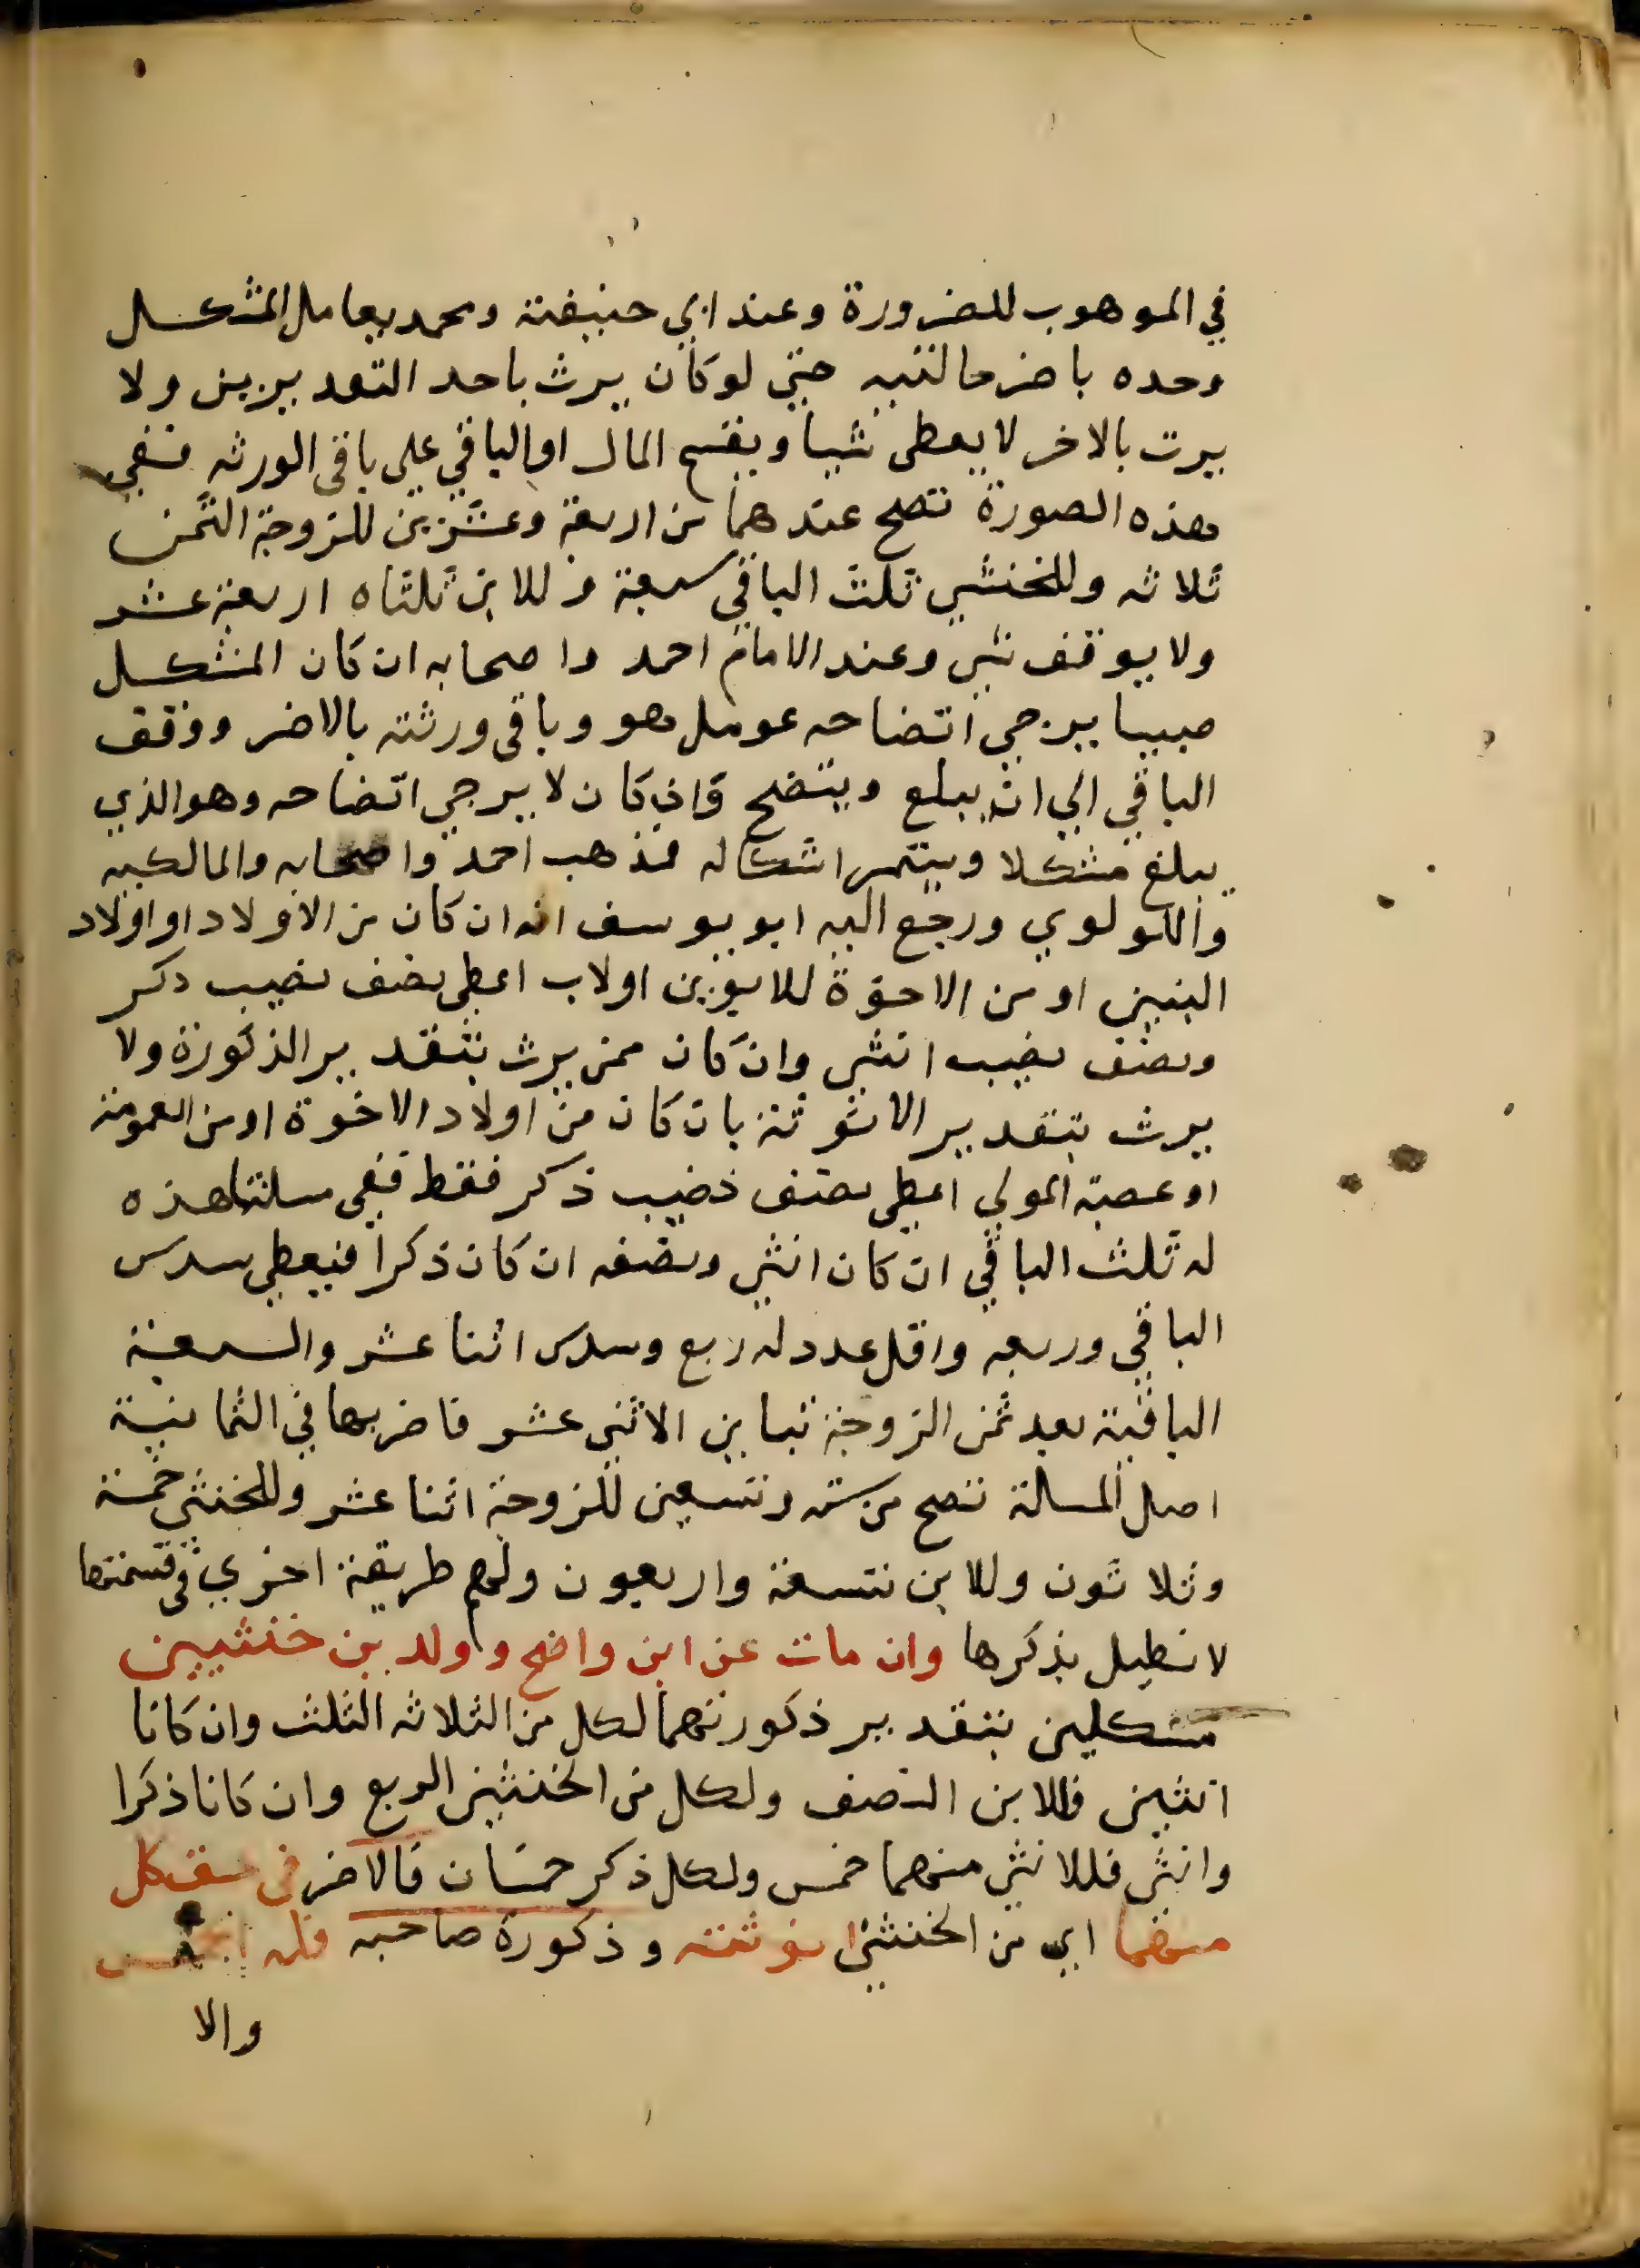 في الموهوب للضرورة وعند ابي حنيفة ومحمد يعامل المشكل
وحده باضر حالتيه حتي لو كان يرث باحد التقديرين ولا
يرث بالاخر لا يعطى شيا ويقسم المال او الباقي على باقى الورثه ففي
هذه الصورة تصح عندهما من اربعة وعشرين للزوجة الثمن
ثلاثه وللخنثي ثلث الباقي سبعة وللابن ثلثاه اربعة عشر
ولا يوقف شي وعند الامام احمد واصحابه ان كان المشكل
صبيا يرجي اتضاحه عومل هو وباقى ورثته بالاضر ووقف
الباقي الي ان يبلغ ويتضح وان كان لا يرجي اتضاحه وهو الذي
يبلغ مشكلا ويستمر اشكاله فمذهب احمد واصحابه والمالكيه
واللولوي ورجع اليه ابو يوسف انه ان كان من الاولاد او اولاد
البنين او من الاخوة للابوين او لاب اعطى نصف نصيب ذكر
ونصف نصيب انثي وان كان ممن يرث بتقدير الذكورة ولا
يرث بتقدير الانوثة بان كان من اولاد الاخوة او من العمومة
او عصبة المولي اعطى نصف نصيب ذكر فقط ففى مسلتنا هذه
له ثلث الباقي ان كان انثي ونصفه ان كان ذكرا فيعطى سدس
الباقي وربعه واقل عدد له ربع وسدس اثنا عشر والسبعة
الباقية بعد ثمن الزوجة تباين الاثني عشر فاضربها في الثمانية
اصل المسالة تصح من سته وتسعين للزوجة اثنا عشر وللخنثي خمسة
وثلاثون وللابن تسعة واربعون ولهم طريقة اخري في قسمتها
لا نطيل بذكرها وان مات عن ابن واضح وولدين خنثيين
مشكلين بتقدير ذكورتهما لكل من الثلاثه الثلث وان كانا
انثيين فللابن النصف ولكل من الخنثيين الربع وان كانا ذكرا
وانثي فللانثي منهما خمس ولكل ذكر خمسان فالاضر في حق كل
منهما اي من الخنثيين انوثته وذكورة صاحبه فله الخمس
والا